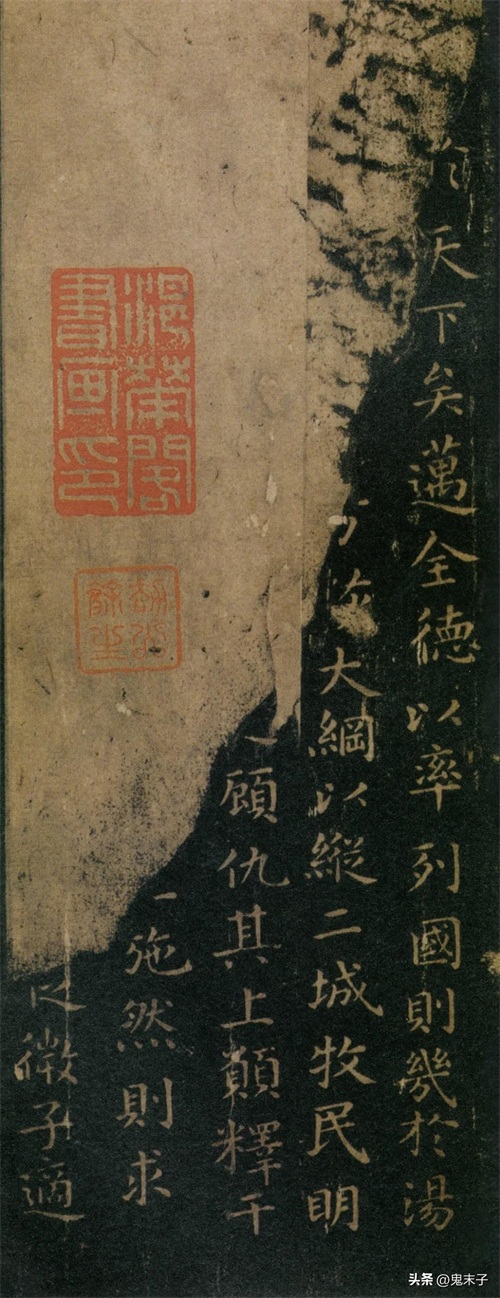 天下矣邁全德以率列國則幾於湯
大綱以縱二城牧民明
顧仇其上願釋干
施然則求
微子適
閣書畫印
头条 @鬼末子